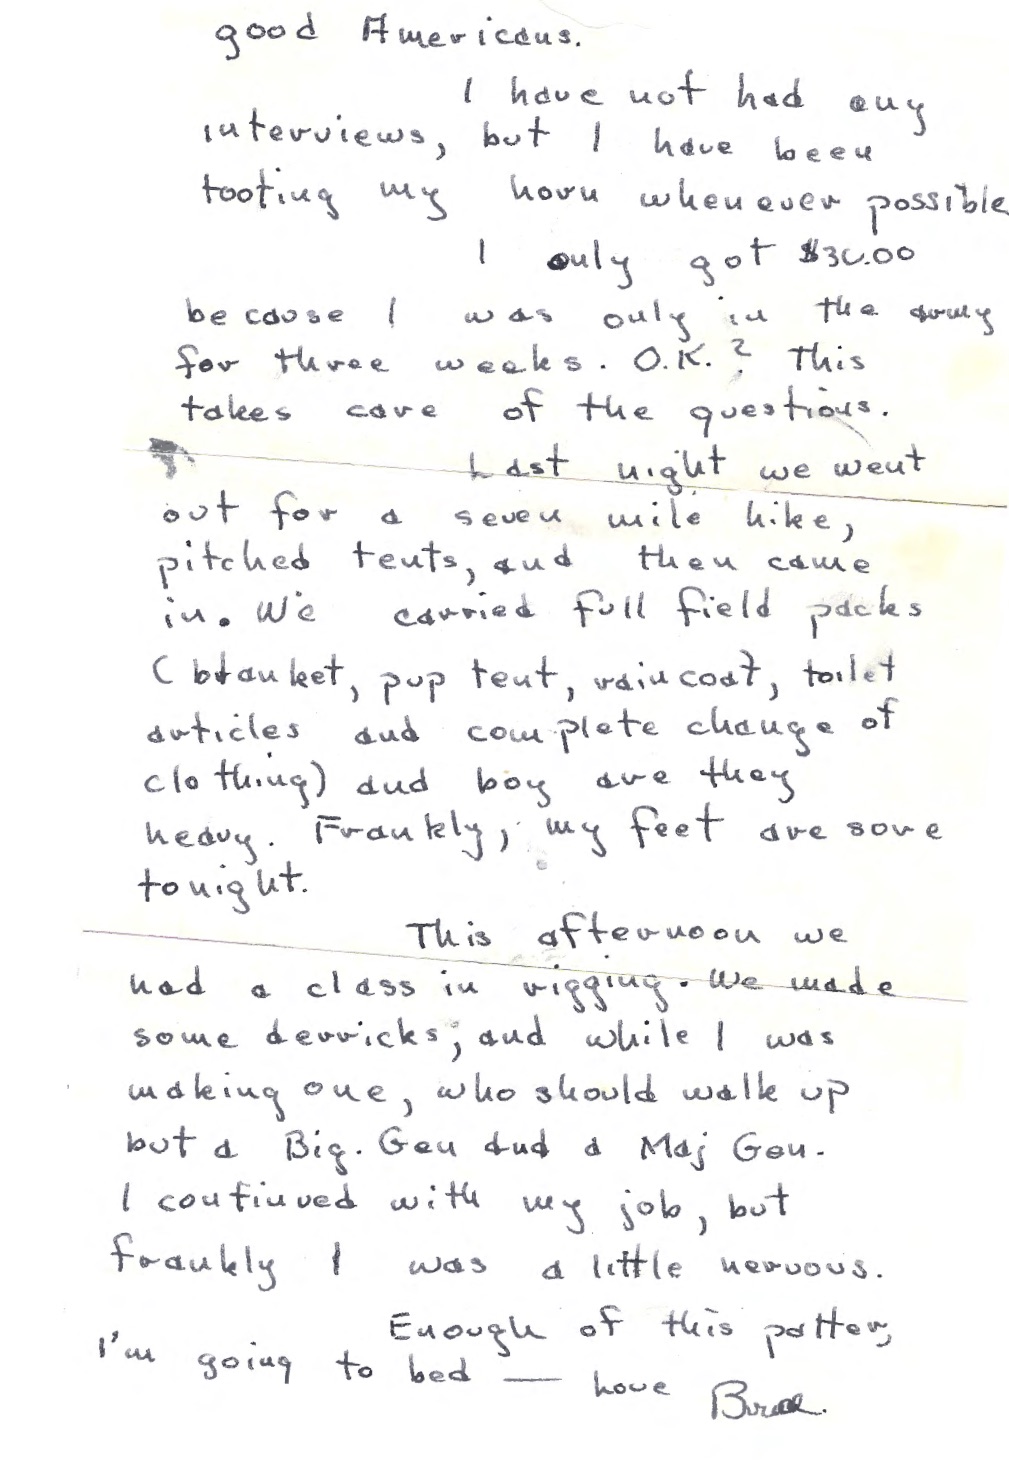 good Americans.
I have not had any
interviews, but I have been
tooting my horn whenever possible
I only got $30.00
because I was only in the army
for three weeks. O.K.? This
takes care of the questions.
Last night we went
out for a seven mile hike,
pitched tents, and then came
in. We carried full field packs
(blanket, pup tent, raincoat, toilet
articles and complete change of
clothing) and boy are they
heavy. Frankly, my feet are sore
tonight.
This afternoon we
had a class in rigging. We made
some derricks, and while I was
making one, who should walk up
but a Big. Gen and a Maj Gen.
I continued with my job, but
frankly I was a little nervous.
Enough of this patter,
I'm going to bed — Love Bruce.